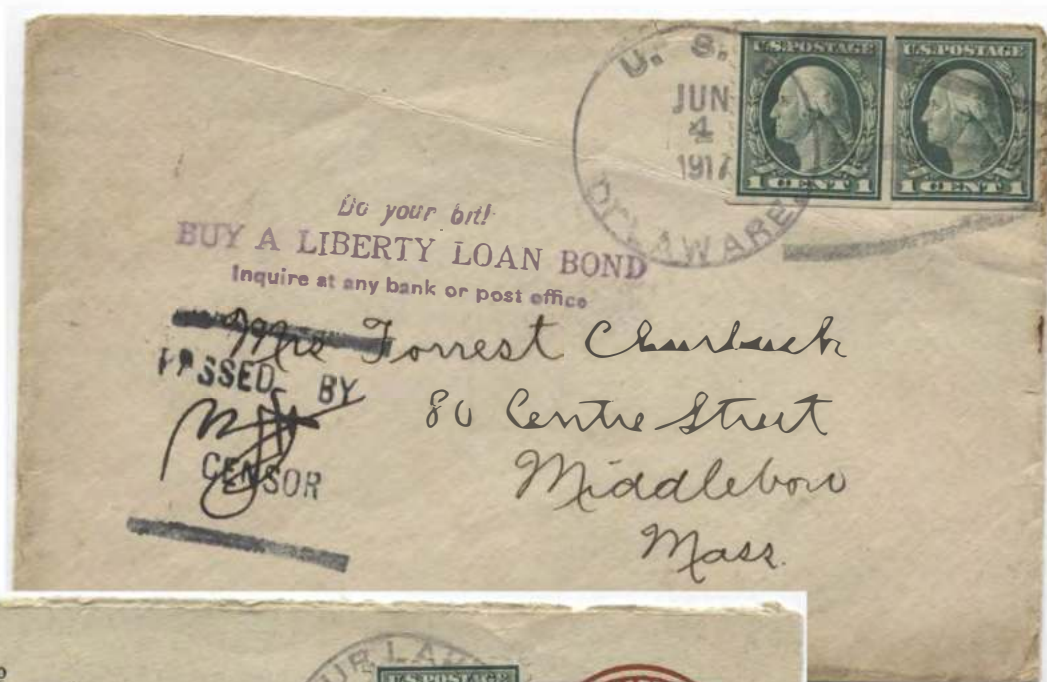 U. S.
JUN
4
1917
DELAWARE.
U.S. POSTAGE
1 CENT 1
U.S. POSTAGE
1 CENT 1
Do your bit!
BUY A LIBERTY LOAN BOND
Inquire at any bank or post office
Mrs Forrest Churbuck
80 Centre Street
Middleboro
Mass.
PASSED BY
CENSOR
U.S. POSTAGE